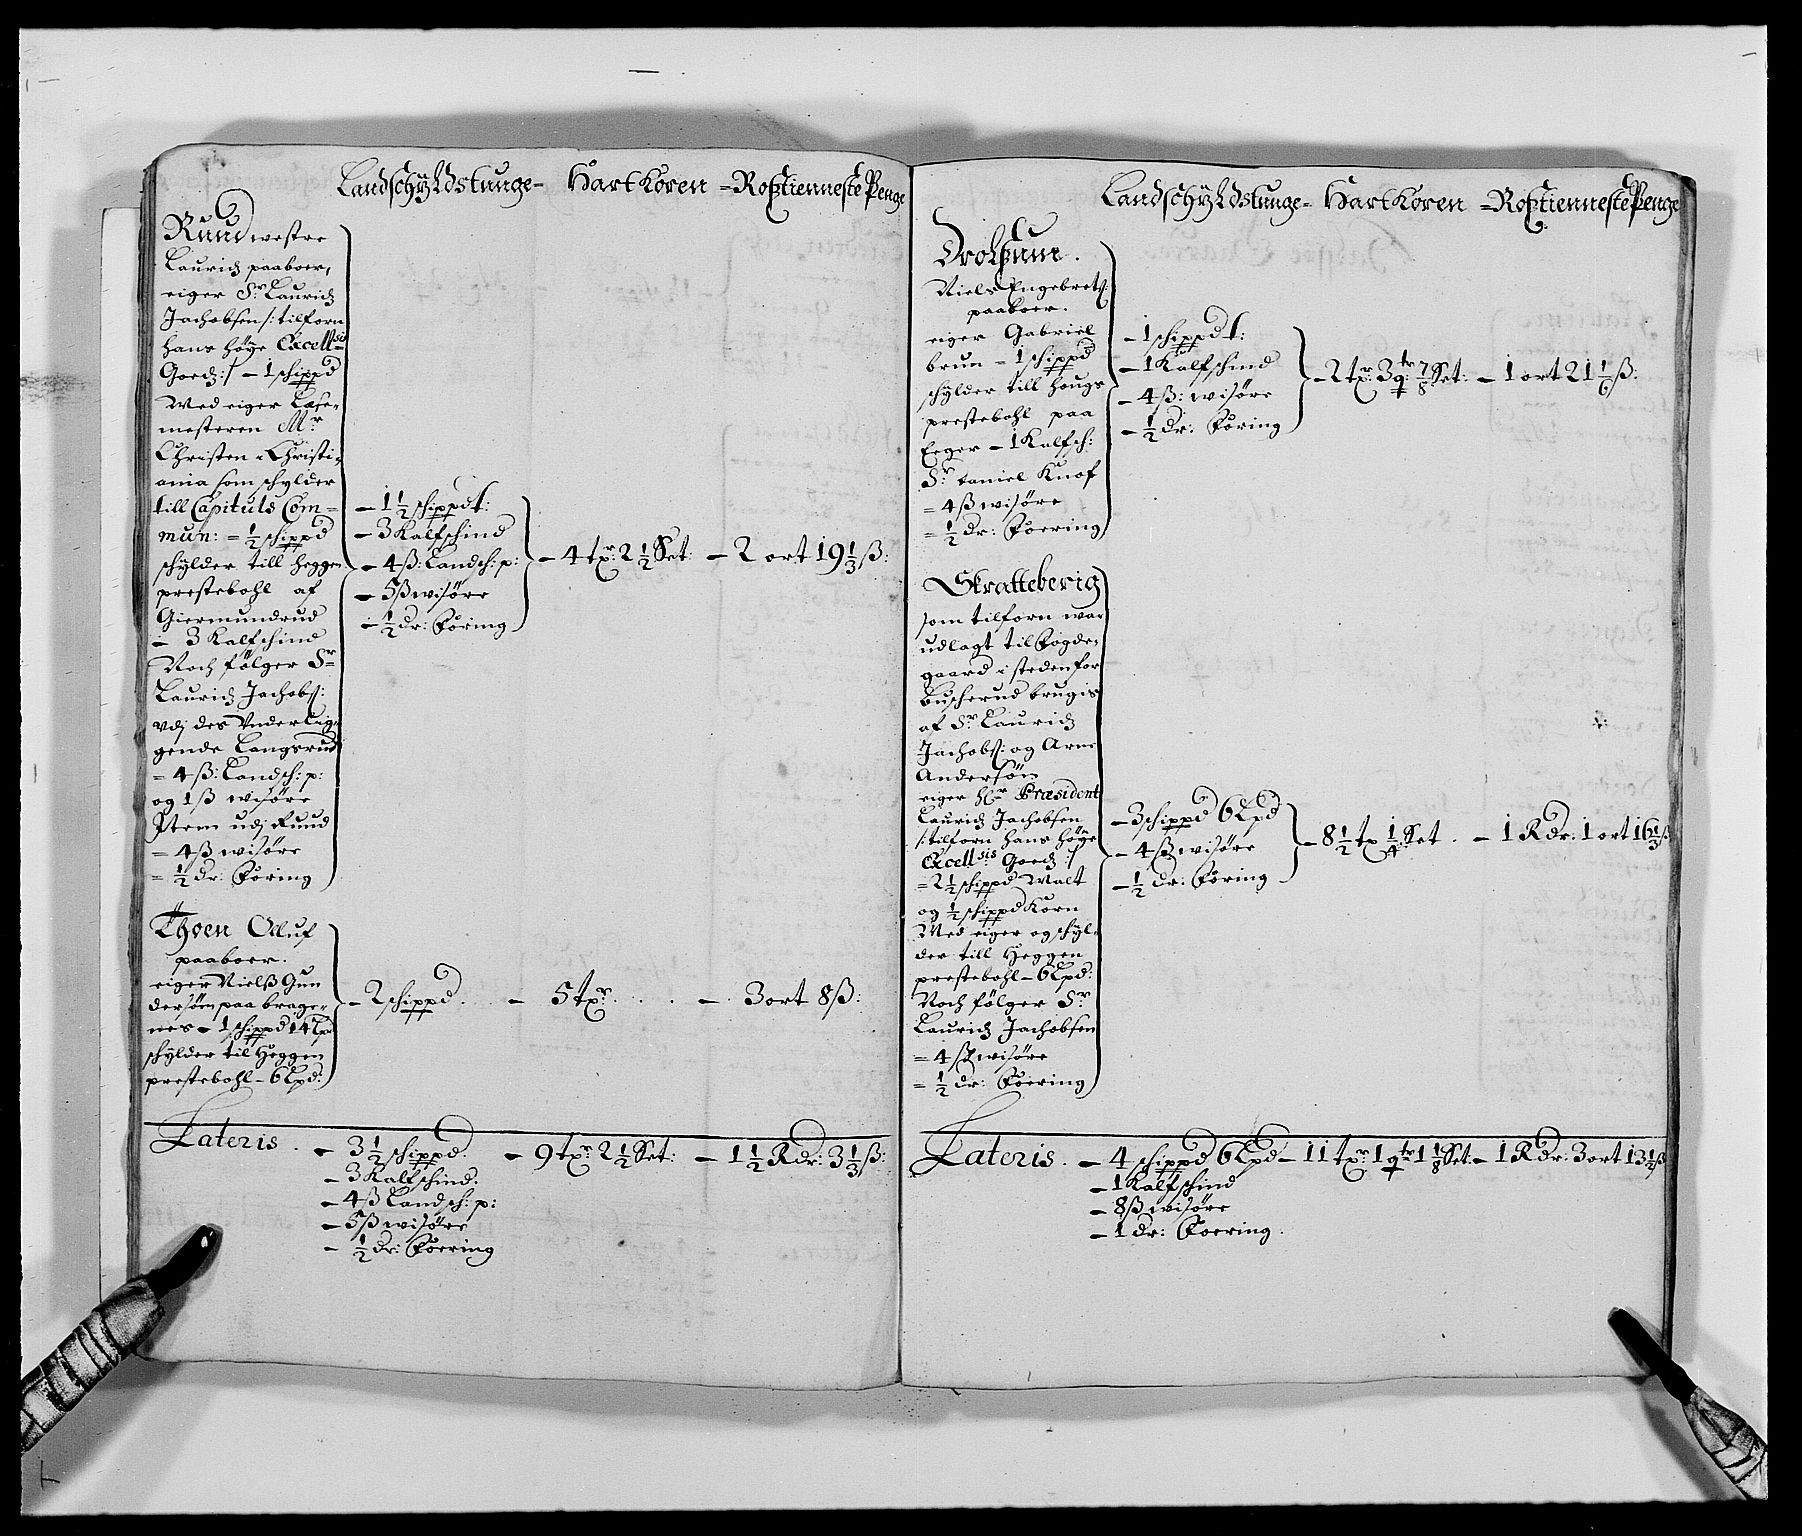 Landschyldstunge - Hart Koren = Roßtienneste Penge
Ruud westre
Lauridz paaboer,
eiger Sr Lauridz
Jachobsen /: tilforn
hans høye Excellsis
Goedz :/ - 1 schippd
Med eiger Læse-
mesteren Mr
Christen i Christi-
ania som schylder
till Capituls Com=
mun: = ½ schippd
schylder till Heggen
prestebohl af
Giermundrud
- 3 Kalfschind
Noch følger Sr
Lauridz Jachobs:
udj des Underlig-
gende Langsrud
= 4 ß: Landsch: p:
og 1 ß wisøre
Item udj Ruud
= 4 ß wisøre
= ½ dr: Foring
- 1½ schippd t:
- 3 Kalfschind
- 4 ß: Landsch: p:
- 5 ß wisøre
- ½ dr: Foring
- 4 txr: 2½ Set: - 2 ort 19⅓ ß:
Thoen Olluf
paaboer.
eiger Nielß Gun
dersøn paa brage-
nes - 1 schippd 14 Lpd
schylder til Heggen
prestebohl - 6 Lpd:
- 2 schippd . - 5 txr: . . . - . 3 ort 8 ß:
Lateris . - 3½ schippd. - 9 txr: 2½ Set: - 1½ Rdr: 3⅓ ß:
- 3 Kalfschind.
- 4 ß Landsch: p:
- 5 ß wisøre
- ½ dr: Foering
Landschyldstunge = Hart Koren = Roßtienneste Penge
Drolßum.
Niels Engebrets:
paaboer.
eiger Gabriel
brun = 1 schippd
schylder till hougs
prestebohl paa
Eeger - 1 Kalfsch:
Sr Daniel Knof
= 4 ß wisøre
= ½ dr: Foering
- 1 schippd t:
- 1 Kalfschind
- 4 ß: wisøre
- ½ dr: Foring
- 2 txr: 3 qtr: ⅞ Set: - 1 ort 21⅙ ß:
Skratteberig
som tilforn war
udlagt til Fogde-
gaard i steden for
Buscherud brugis
af Sr Lauridz
Jachobs: og Arne
Andersøn
eiger Hr Præsident
Lauridz Jachobsen
/: tilforn hans høye
Excellsis Goedz :/
= 2½ schippd Malt
og ½ schippd Korn
Med eiger og schyl-
der till Heggen
prestebohl - 6 Lpd:
Noch følger Sr
Lauridz Jachobsen
= 4 ß wisøre
= ½ dr: Foering
- 3 schippd 6 Lpd
- 4 ß wisøre
- ½ dr: Foring
- 8½ tx ¼ Set . - 1 Rdr: 1 ort 16⅓ ß
Lateris . - 4 schippd 6 Lpd - 11 txr: 1 qtr 1⅛ Set: - 1 Rdr: 3 ort 13½ ß
- 1 Kalfschind
- 8 ß wisøre
- 1 dr: Foering .